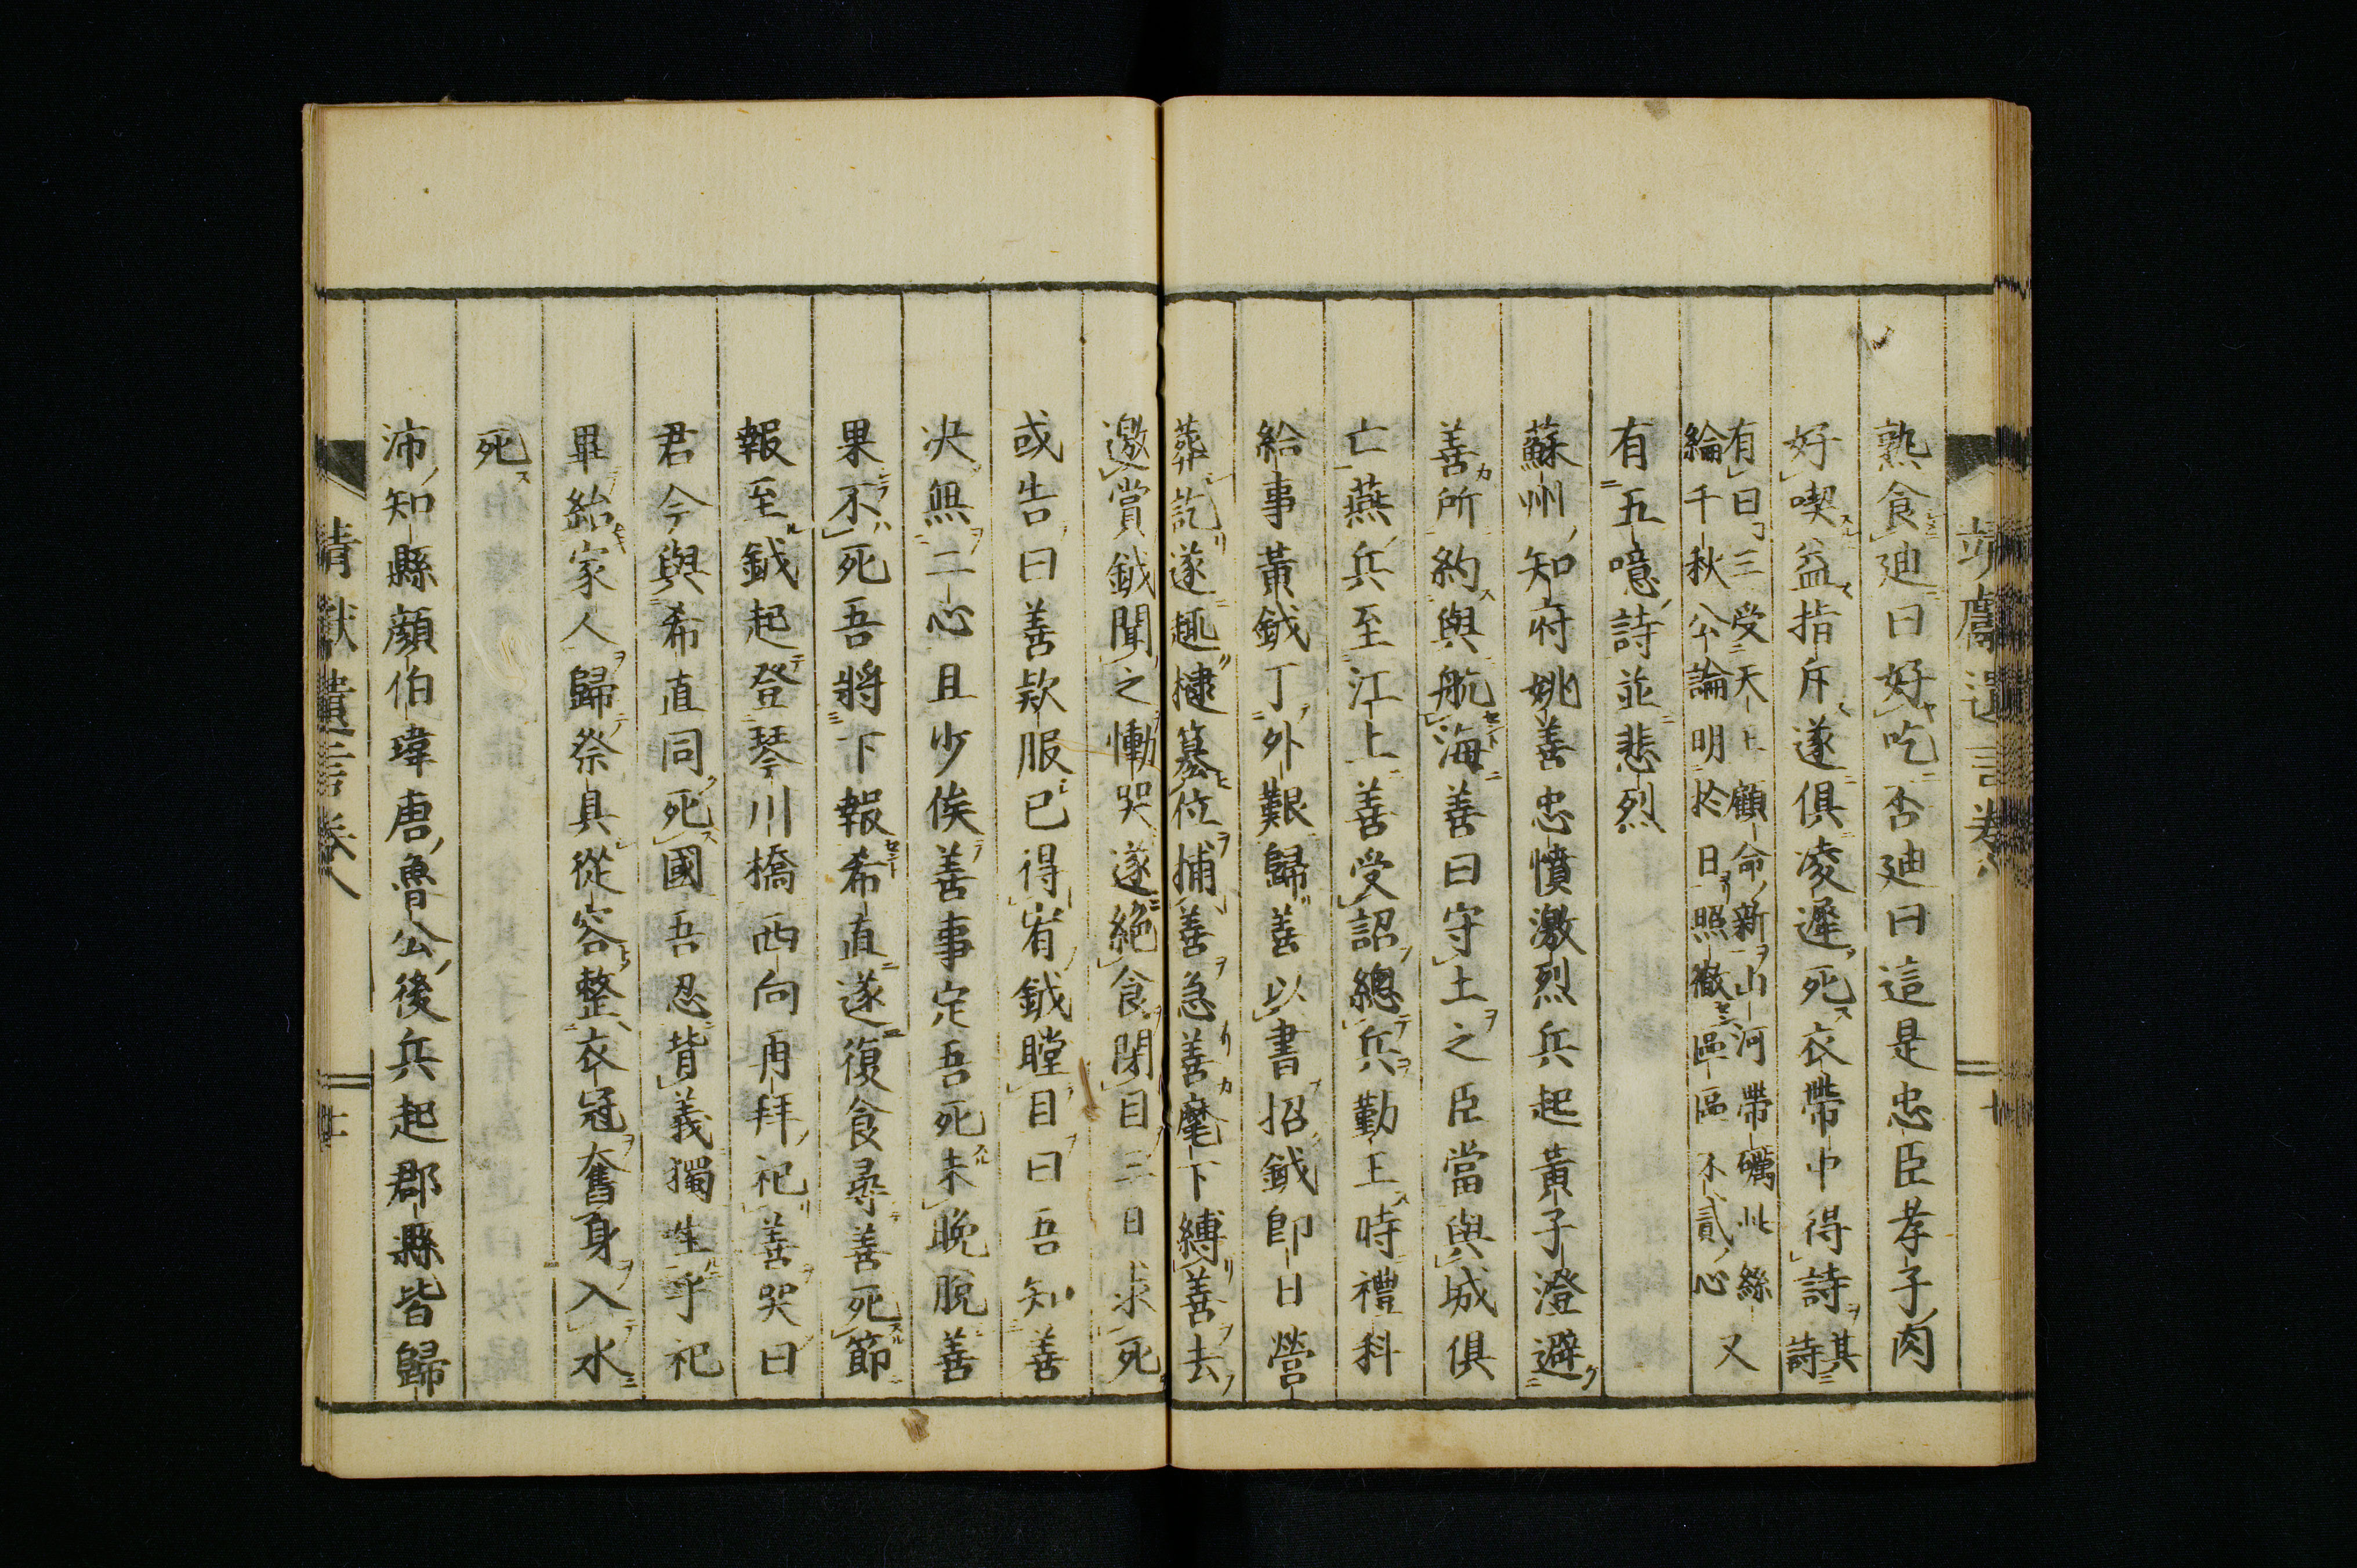 靖獻遺言卷八
熟食廸曰好吃否廸曰這是忠臣孝子肉
好喫益指斥遂俱凌遲死衣帶中得詩其詩
有曰三受天上顧命新山河帶礪此絲
綸千秋公論明於日照徹區區不貳心又
有五噫詩並悲烈
蘇州知府姚善忠憤激烈兵起黃子澄避
善所約與航海善曰守土之臣當與城俱
亡燕兵至江上善受詔總兵勤王時禮科
給事黃鉞丁外艱歸善以書招鉞即日營
葬訖遂趣捷墓位捕善急善麾下縛善去
邀賞鉞聞之慟哭遂絕食閉目三日求死
或告曰善欵服已得宥鉞瞠目曰吾知善
决無二心且少俟善事定吾死未晚脫善
果不死吾將下報希直遂復食尋善死節
報至鉞起登琴川橋西向再拜祀善哭曰
君今與希直同死國吾忍背義獨生乎祀
畢紿家人歸祭具從容整衣冠奮身入水
死
沛知縣顏伯瑋唐魯公後兵起郡縣皆歸
靖獻遺言卷八